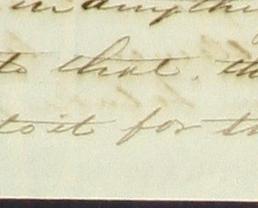 in anythi
to that, th
to it for th